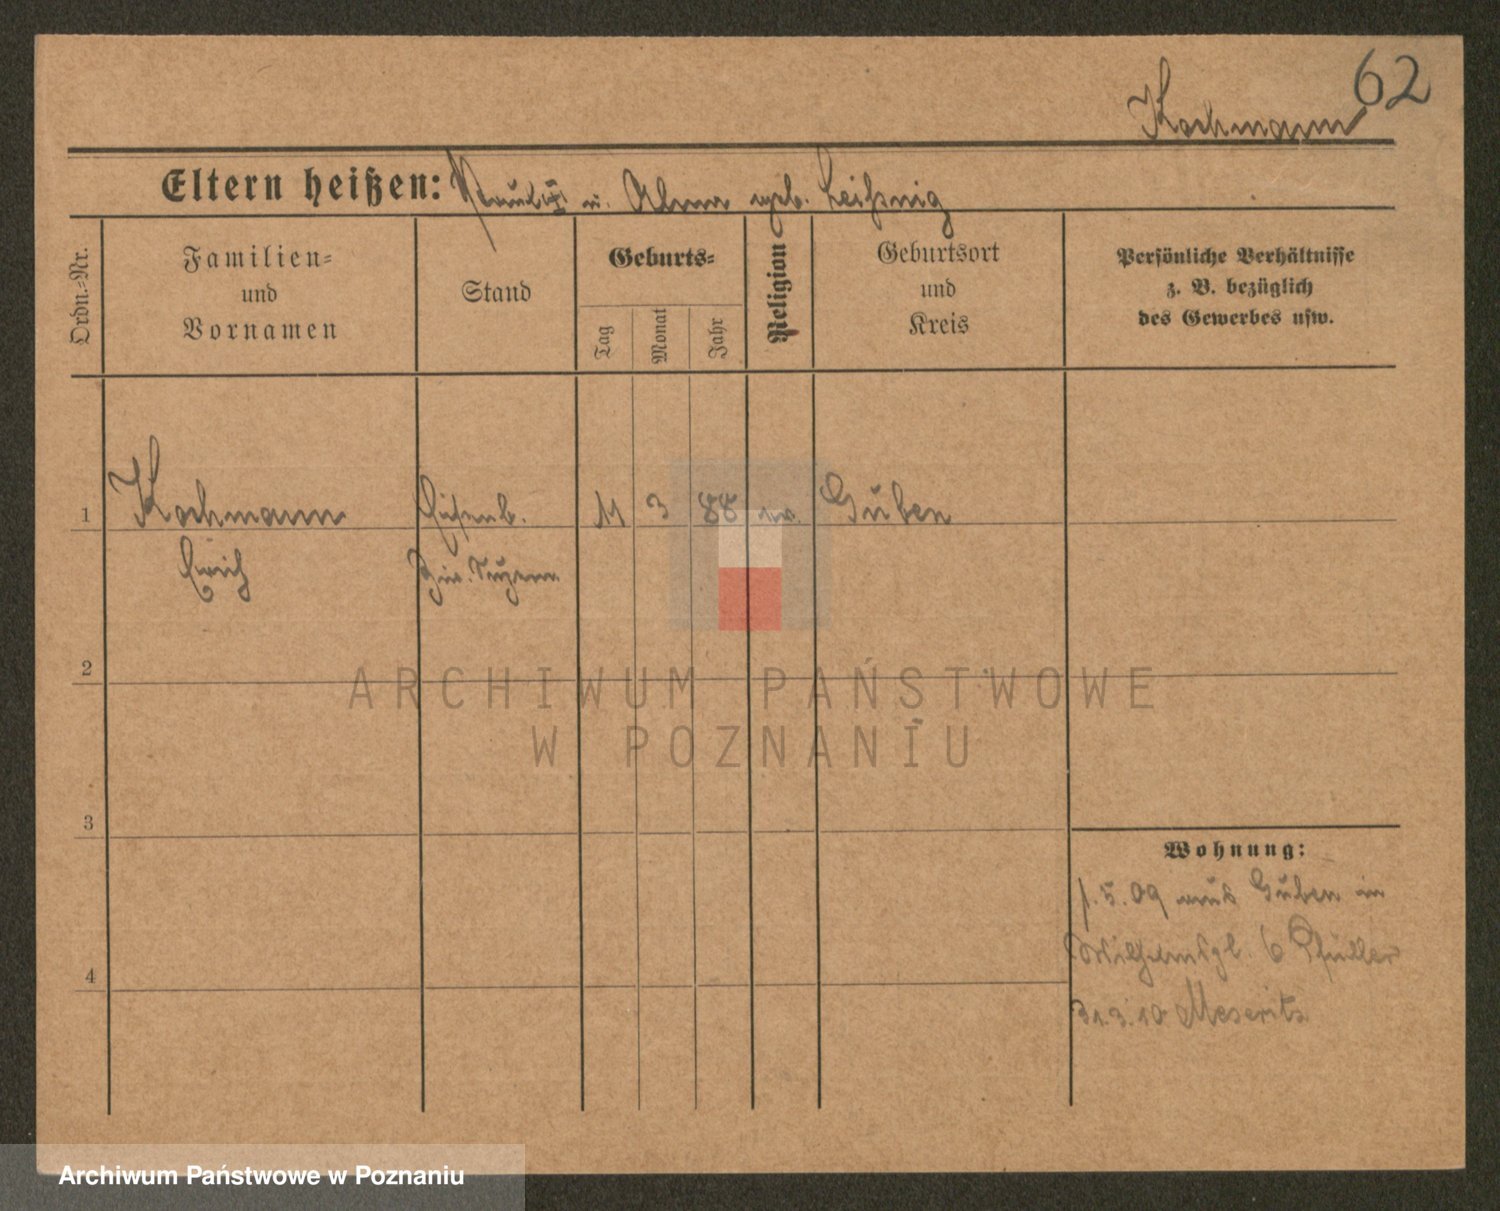 62
Kochmann
Eltern heißen: u. Alma geb. Leißnig
Ordn.-Nr.
Familien-
und
Vornamen
Stand
Geburts-
Tag
Monat
Jahr
Religion
Geburtsort
und
Kreis
Persönliche Verhältnisse
z. B. bezüglich
des Gewerbes usw.
1 Kochmann Eisenb. 11 3 88 ev. Guben
Erich
2
3
4
Wohnung:
1.5.09 aus Guben in
6
31.3.10 Meseritz
ARCHIWUM PAŃSTWOWE
W POZNANIU
Archiwum Państwowe w Poznaniu